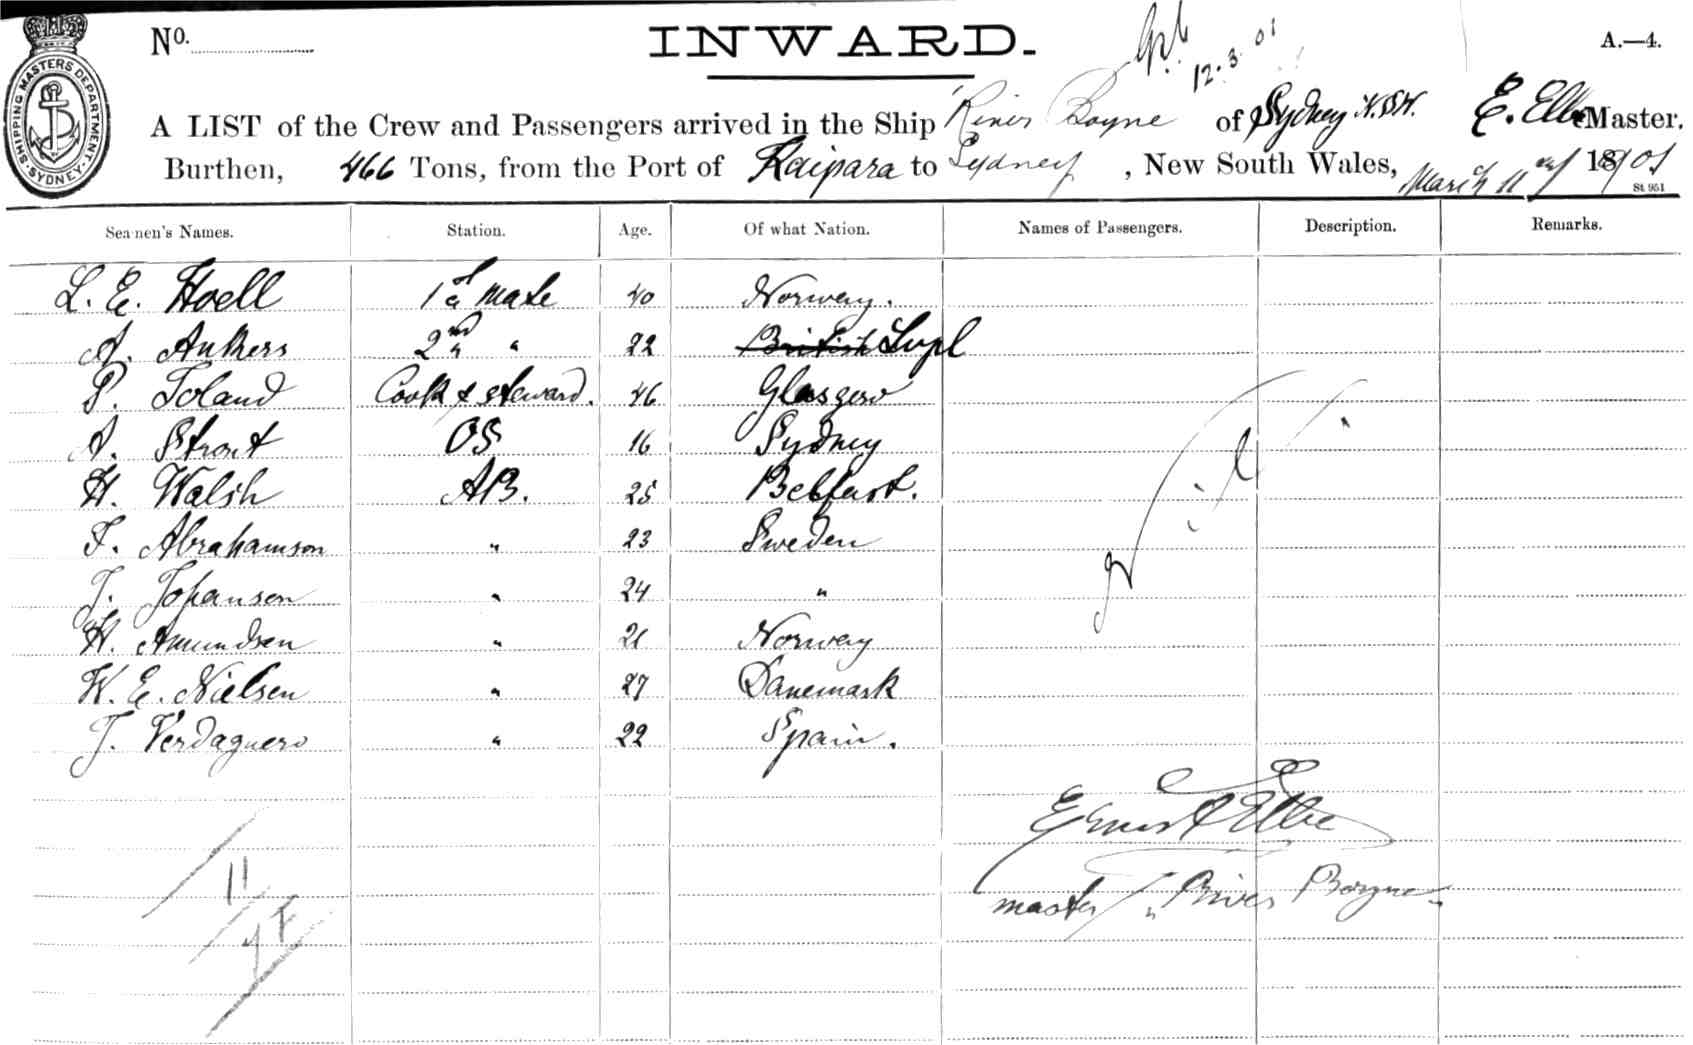 SHIPPING MASTERS DEPARTMENT. SYDNEY.
No.
INWARD.
12.3.01
A.—4.
A LIST of the Crew and Passengers arrived in the Ship River Boyne of Sydney N.S.W. E. Elbe Master,
Burthen, 466 Tons, from the Port of Kaipara to Sydney, New South Wales, March 11th 1901
St. 951
Seamen's Names. Station. Age. Of what Nation. Names of Passengers. Description. Remarks.
L. E. Hoell 1st mate 40 Norway.
A. Ankers 2nd " 22 British Lvpl
P. Toland Cook & steward. 46 Glasgow
A. Strout OS 16 Sydney
H. Walsh AB. 25 Belfast.
F. Abrahamson " 23 Sweden
J. Johanson " 24 "
H. Amundsen " 21 Norway
W. E. Nielsen " 27 Danemark
J. Verdaguero " 22 Spain.
Nil
Ernest Elbe
master "River Boyne"
11